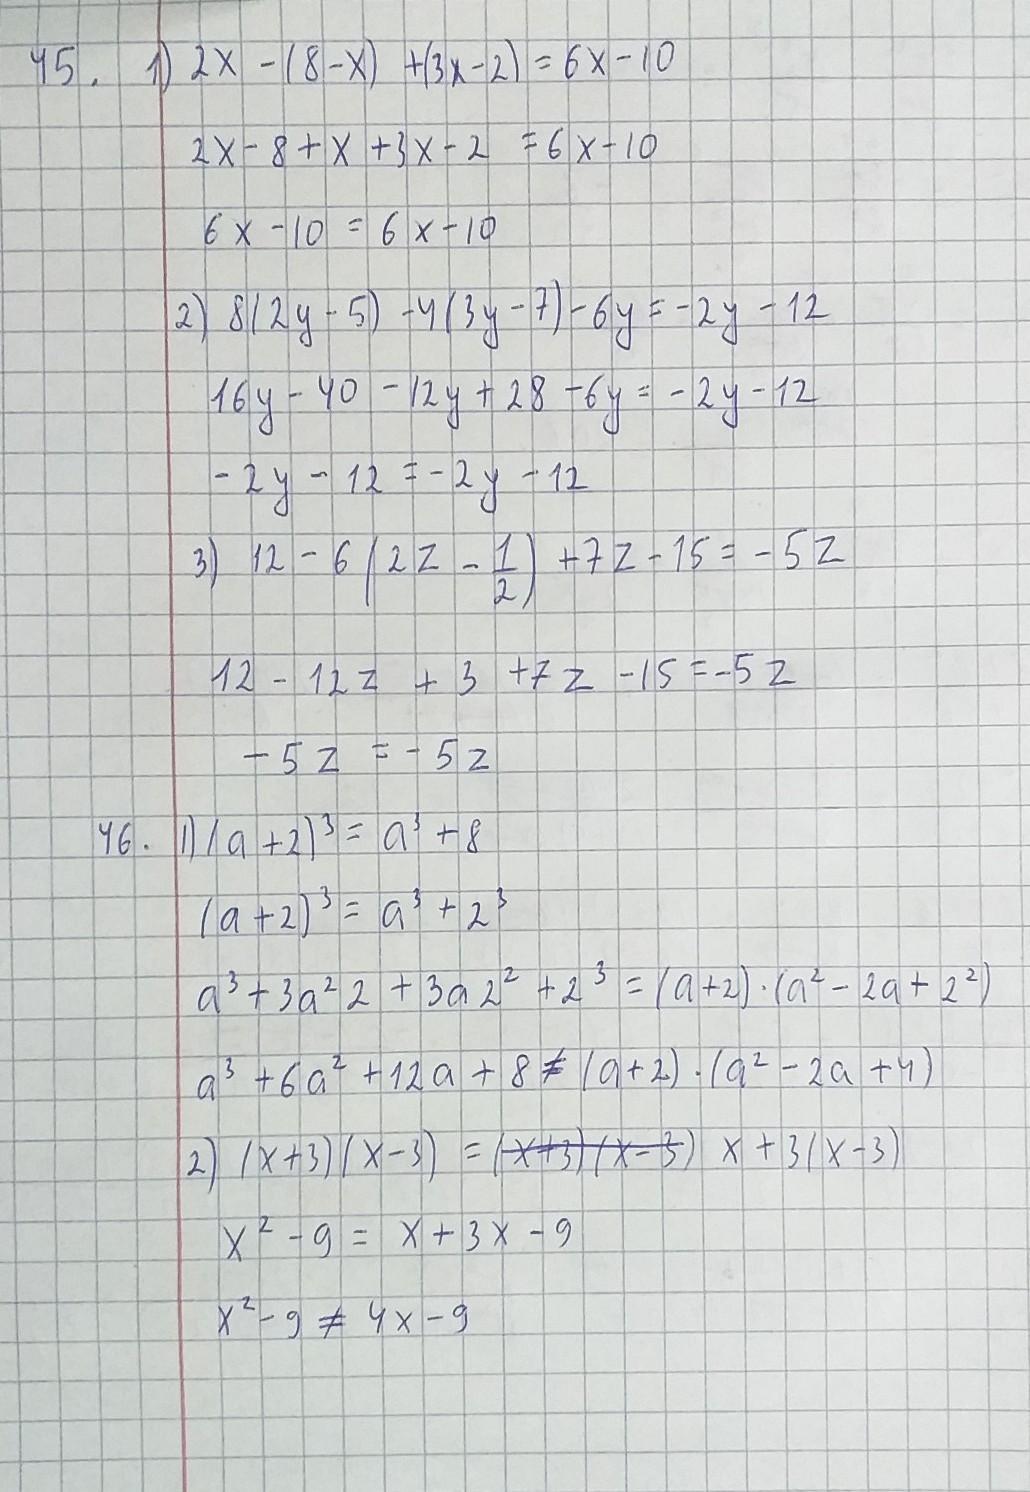 45. 1) 2x - (8 - x) + (3x - 2) = 6x - 10
2x - 8 + x + 3x - 2 = 6x - 10
6x - 10 = 6x - 10
2) 8(2y - 5) - 4(3y - 7) - 6y = -2y - 12
16y - 40 - 12y + 28 - 6y = -2y - 12
-2y - 12 = -2y - 12
3) 12 - 6(2z - 1/2) + 7z - 15 = -5z
12 - 12z + 3 + 7z - 15 = -5z
-5z = -5z
46. 1) (a + 2)³ = a³ + 8
(a + 2)³ = a³ + 2³
a³ + 3a² 2 + 3a 2² + 2³ = (a + 2) · (a² - 2a + 2²)
a³ + 6a² + 12a + 8 ≠ (a + 2) · (a² - 2a + 4)
2) (x + 3)(x - 3) = (x + 3)(x - 3) x + 3(x - 3)
x² - 9 = x + 3x - 9
x² - 9 ≠ 4x - 9